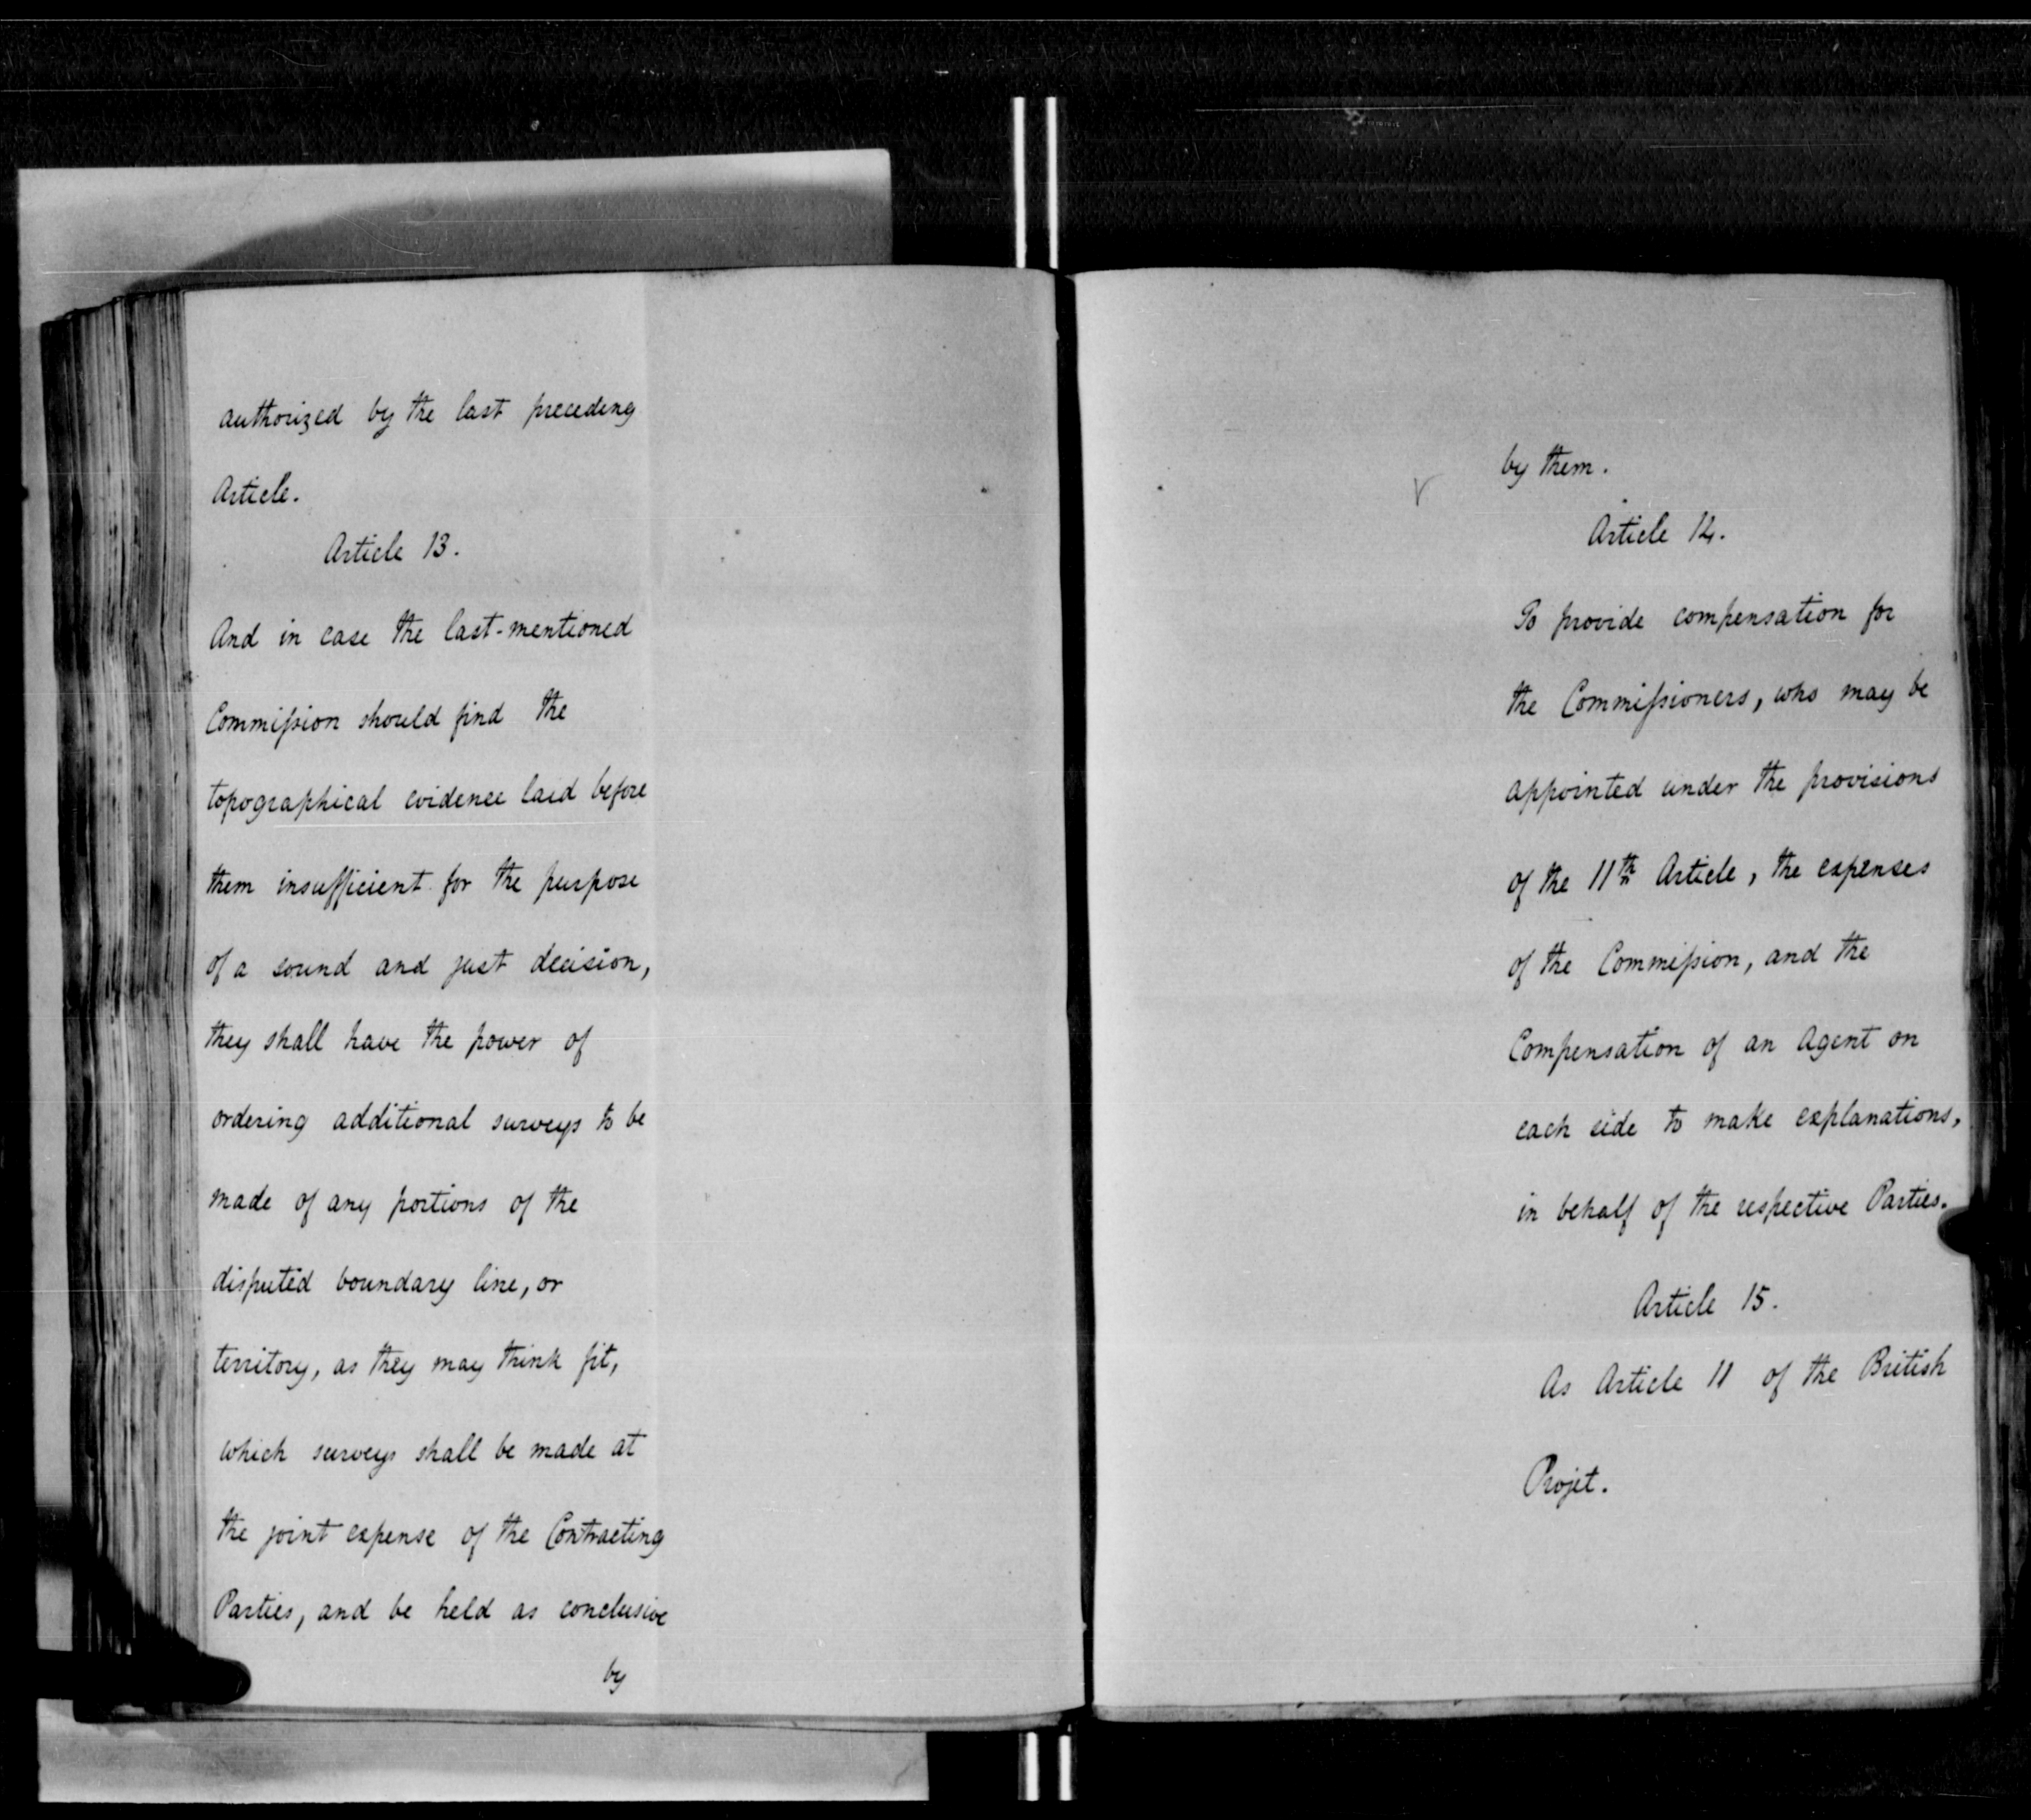 authorized by the last preceding
Article.
Article 13.
And in case the last-mentioned
Commission should find the
topographical evidence laid before
them insufficient for the purpose
of a sound and just decision,
they shall have the power of
ordering additional surveys to be
made of any portions of the
disputed boundary line, or
territory, as they may think fit,
which surveys shall be made at
the joint expense of the Contracting
Parties, and be held as conclusive
by
by them.
Article 14.
To provide compensation for
the Commissioners, who may be
appointed under the provisions
of the 11th Article, the expenses
of the Commission, and the
Compensation of an Agent on
each side to make explanations,
in behalf of the respective Parties.
Article 15.
As Article 11 of the British
Projet.